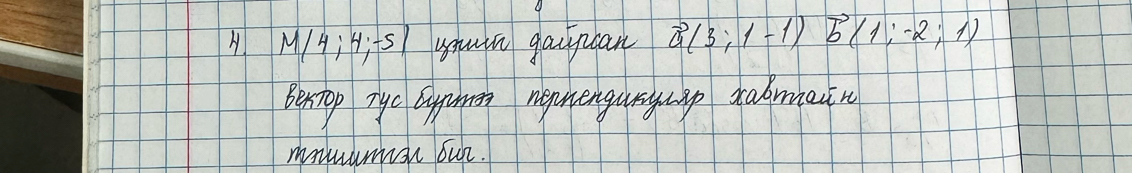 4. M(4;4;-5) цэгийг дайрсан a⃗(3;1-1) b⃗(1;-2;1)
вектор тус бүртээ перпендикуляр хавтгайн
тэгшитгэл бич.